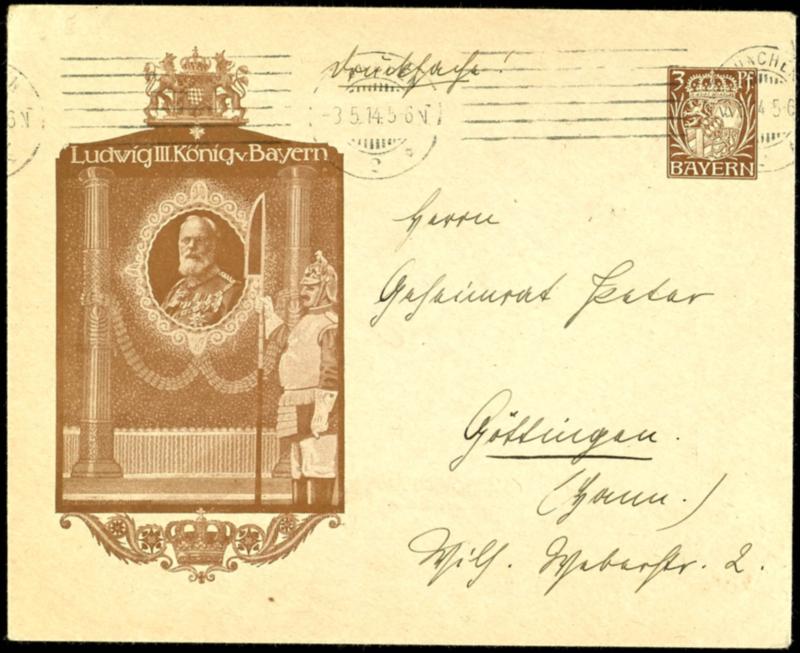 Drucksache!
-3.5.14.5-6 N
MÜNCHEN
3 Pf
BAYERN
Ludwig III. König v. Bayern
Herrn
Geheimrat Peter
Göttingen.
(Hann.)
Wilh. Weberstr. 2.